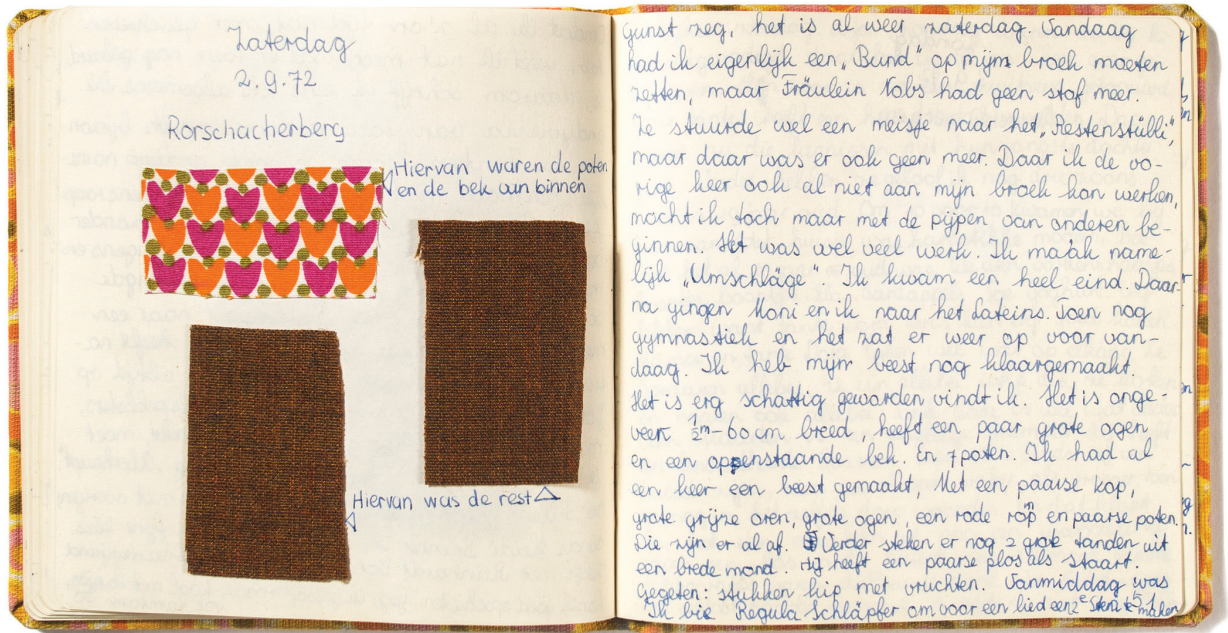 Zaterdag
2.9.72
Rorschacherberg
Hiervan waren de poten
en de bek van binnen
Hiervan was de rest
Gunst zeg, het is al weer zaterdag. Vandaag
had ik eigenlijk een „Bund" op mijn broek moeten
zetten, maar Fräulein Kobs had geen stof meer.
Ze stuurde wel een meisje naar het „Restenstübli",
maar daar was er ook geen meer. Daar ik de vo-
rige keer ook al niet aan mijn broek kon werken,
mocht ik toch maar met de pijpen van onderen be-
ginnen. Het was wel veel werk. Ik maák name-
lijk „Umschläge" Ik kwam een heel eind. Daar-
na gingen Moni en ik naar het Lateins. Toen nog
gymnastiek en het zat er weer op voor van-
daag. Ik heb mijn beest nog klaargemaakt.
Het is erg schattig geworden vindt ik. Het is onge-
veer ½m-60cm breed, heeft een paar grote ogen
en een openstaande bek. En 7 poten. Ik had al
een keer een beest gemaakt, Met een paarse kop,
grote grijze oren, grote ogen, een rode romp en paarse poten.
Die zijn er al af. Verder steken er nog 2 grote tanden uit
een brede mond. Hij heeft een paarse plos als staart.
Gegeten: stukken kip met vruchten. Vanmiddag was
Ik bie Regula Schläpfer om voor een lied een 2e stem te maken